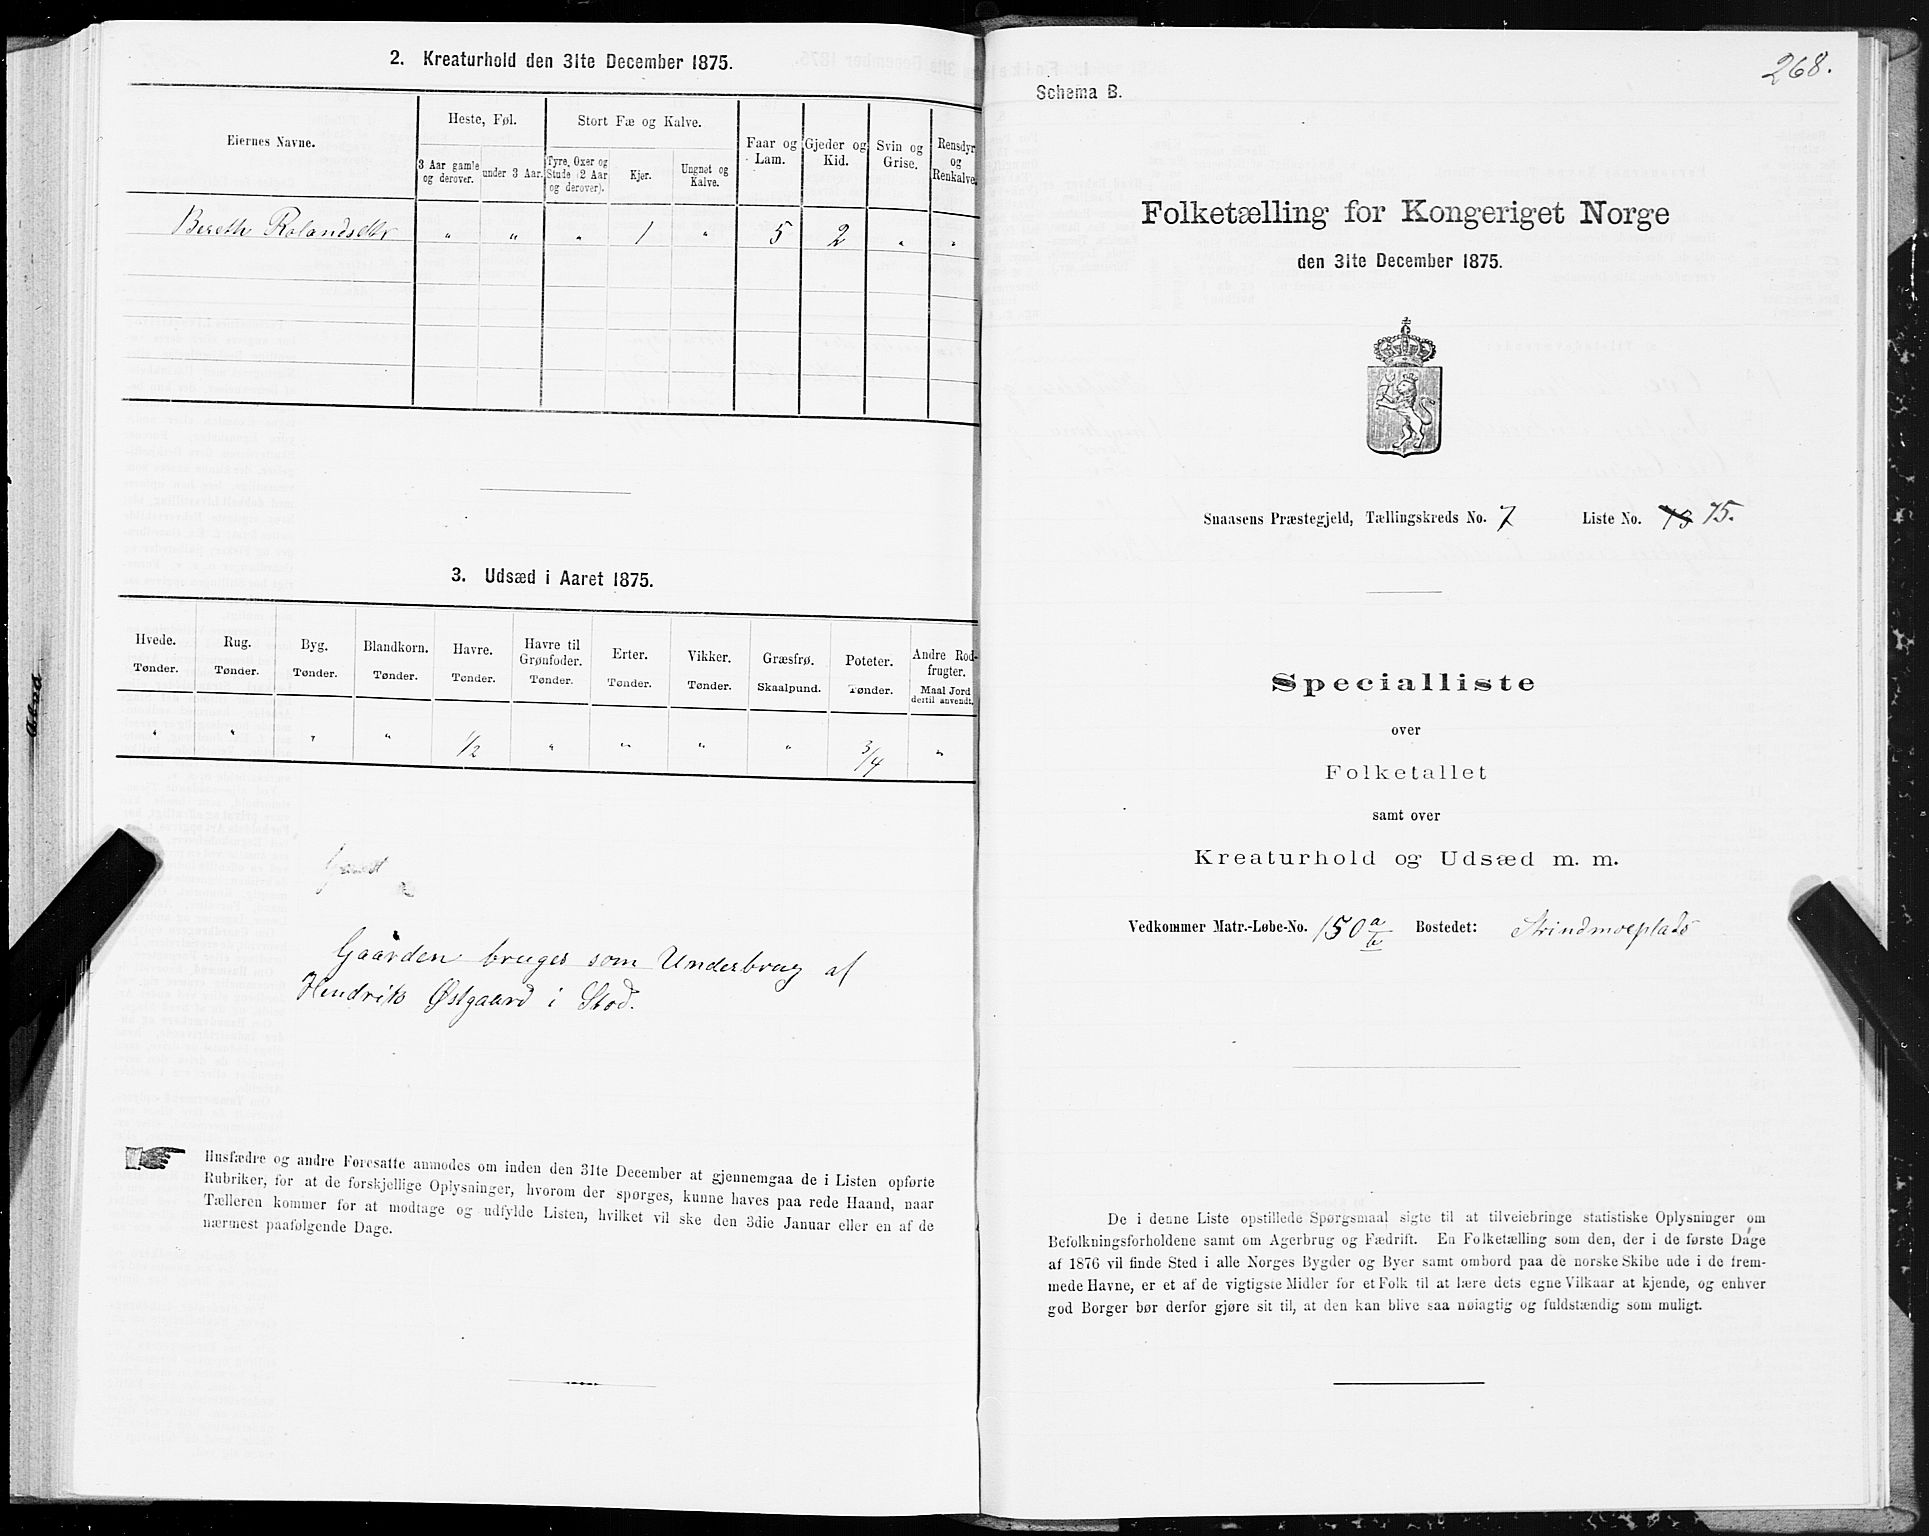 2. Kreaturhold den 31te December 1875.
Eiernes Navne.
Heste, Føl.
Stort Fæ og Kalve.
Faar og Lam.
Gjeder og Kid.
Svin og Grise.
Rensdyr og Renkalve.
3 Aar gamle og derover.
under 3 Aar.
Tyre, Oxer og Stude (2 Aar og derover).
Kjer.
Ungnøt og Kalve.
Bereth Rolandsdtr " " " 1 " 5 2 " "
3. Udsæd i Aaret 1875.
Hvede. Rug. Byg. Blandkorn. Havre. Havre til Grønfoder. Erter. Vikker. Græsfrø. Poteter. Andre Rodfrugter.
Tønder. Tønder. Tønder. Tønder. Tønder. Tønder. Tønder. Tønder. Skaalpund. Tønder. Maal Jord dertil anvendt.
" " " " 1/2 " " " " 3/4 "
Gaarden bruges som Underbrug af
Hendrik Østgaard i Stod.
Husfædre og andre Foresatte anmodes om inden den 31te December at gjennemgaa de i Listen opførte
Rubriker, for at de forskjellige Oplysninger, hvorom der spørges, kunne haves paa rede Haand, naar
Tælleren kommer for at modtage og udfylde Listen, hvilket vil ske den 3die Januar eller en af de
nærmest paafølgende Dage.
268.
Schema B.
Folketælling for Kongeriget Norge
den 31te December 1875.
Snaasens Præstegjeld, Tællingskreds No. 7 Liste No. 75.
Specialliste
over
Folketallet
samt over
Kreaturhold og Udsæd m. m.
Vedkommer Matr.-Løbe-No. 150 a/b Bostedet: Strindmoeplads
De i denne Liste opstillede Spørgsmaal sigte til at tilveiebringe statistiske Oplysninger om
Befolkningsforholdene samt om Agerbrug og Fædrift. En Folketælling som den, der i de første Dage
af 1876 vil finde Sted i alle Norges Bygder og Byer samt ombord paa de norske Skibe ude i de frem-
mede Havne, er et af de vigtigste Midler for et Folk til at lære dets egne Vilkaar at kjende, og enhver
god Borger bør derfor gjøre sit til, at den kan blive saa nøiagtig og fuldstændig som muligt.